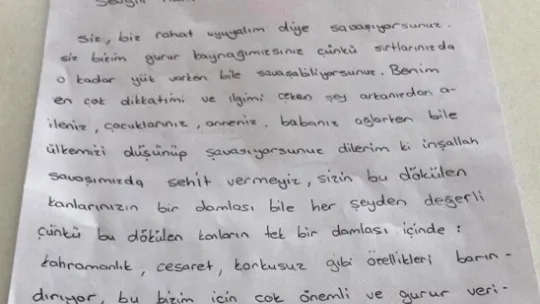 Sevgili
Siz, biz rahat uyuyalım diye savaşıyorsunuz.
siz bizim gurur kaynağımızsınız çünkü sırtlarınızda
o kadar yük varken bile savaşabiliyorsunuz. Benim
en çok dikkatimi ve ilgimi çeken şey arkanızdan a-
ileniz, çocuklarınız, anneniz, babanız ağlarken bile
ülkemizi düşünüp savaşıyorsunuz dilerim ki inşallah
savaşımızda şehit vermeyiz, sizin bu dökülen
kanlarınızın bir damlası bile her şeyden değerli
çünkü bu dökülen kanların tek bir damlası içinde:
kahramanlık, cesaret, korkusuz gibi özellikleri barın-
dırıyor, bu bizim için çok önemli ve gurur veri-